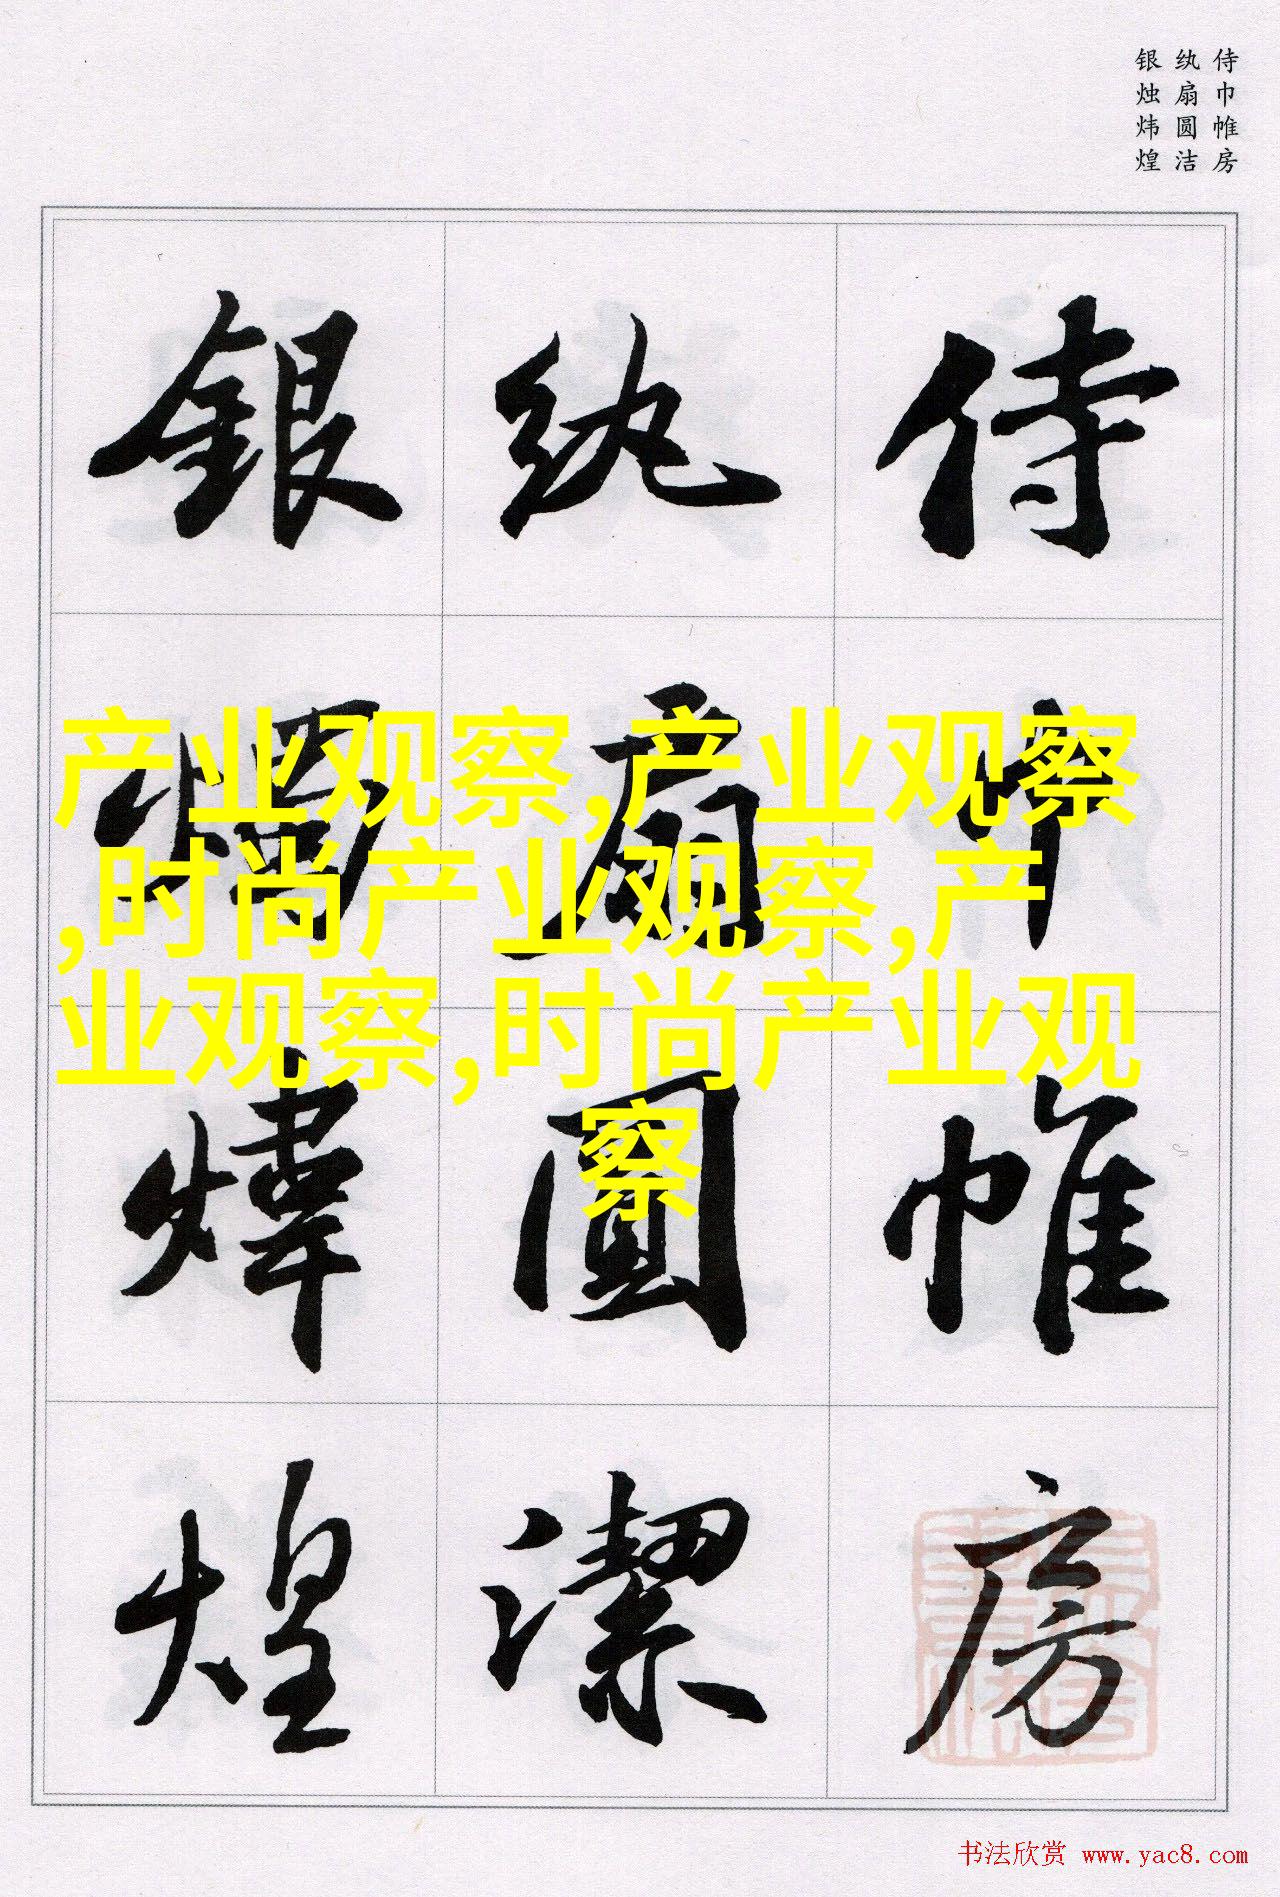 侍巾帷房
纨扇圆洁
银烛炜煌
侍巾帷房
纨扇圓潔
銀燭煒煌
产业观察,产业观察
,时尚产业观察,产
业观察,时尚产业观
察
书法欣赏 www.yac8.com